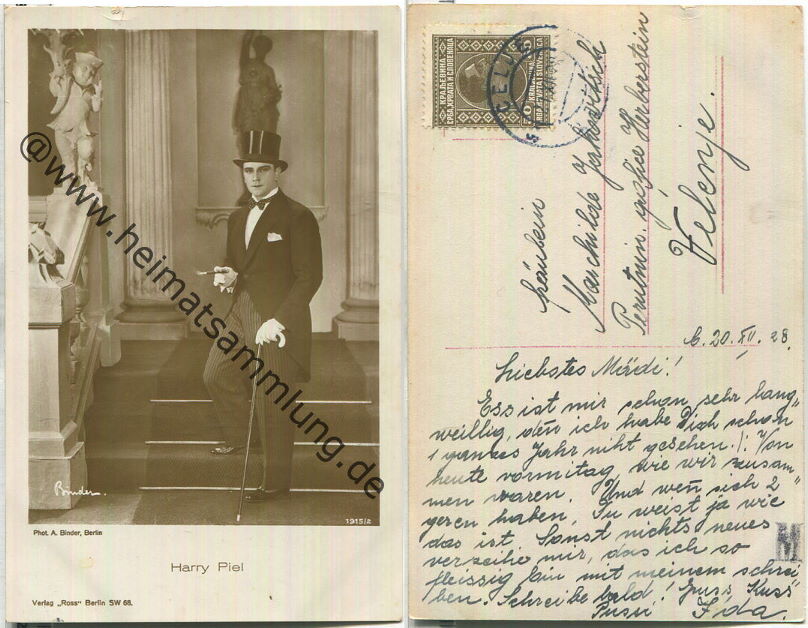 @www.heimatsammlung.de
Binder.
1915/2
Phot. A. Binder, Berlin
Harry Piel
Verlag „Ross“ Berlin SW 68.
КРАЉЕВИНА
СРБА, ХРВАТА И СЛОВЕНАЦА
CELJE
Fräulein
Velenje.
C. 20. XII. 28.
Liebstes Mädi!
Ess ist mir schon sehr lang„
weillig, den̄ ich habe Dich schon
1 ganzes Jahr niht gesehen. Von
heute vormitag, wie wir zusam„
men waren. Und wen̄ sich 2
geren haben, Du weist ja wie
das ist. Sonst nichts neues
verzeihe mir, das ich so
fleissig bin mit meinem schrei
ben. Schreibe bald! Gruss, Kuss
Pussi! Ida.